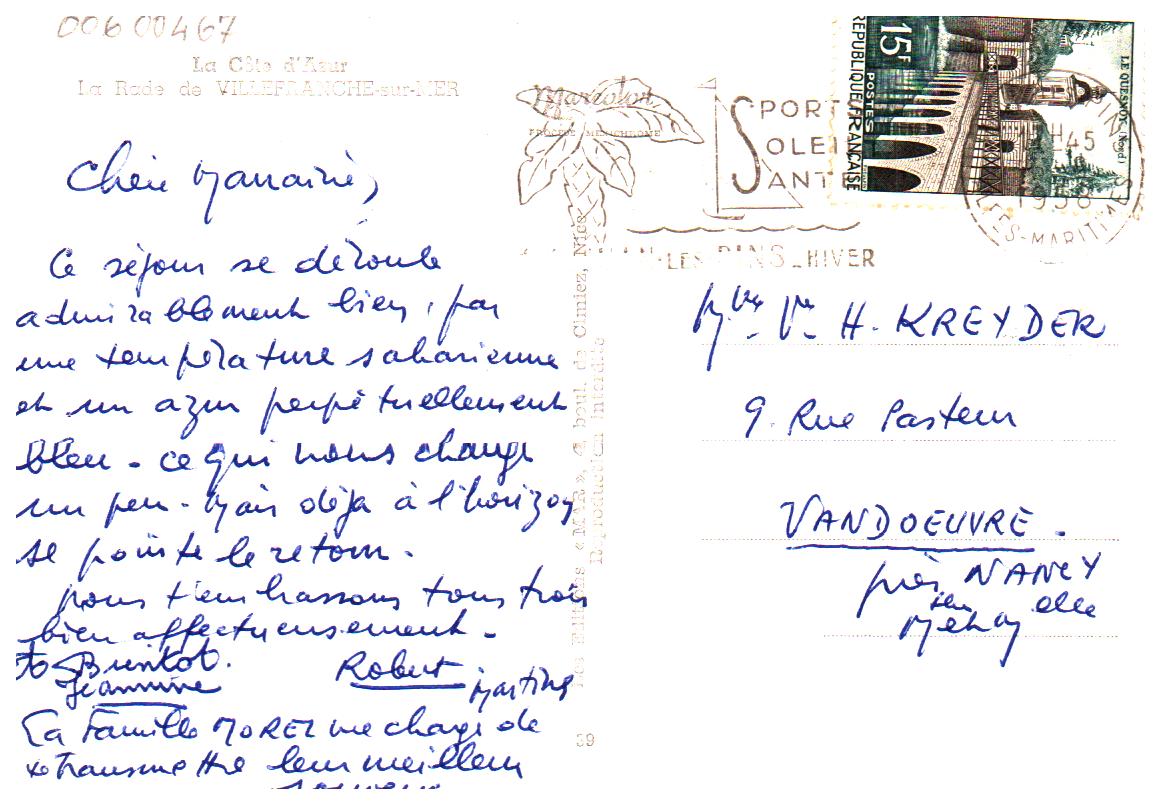 00600467
La Côte d'Azur
La Rade de VILLEFRANCHE-sur-MER
Chère Marraine,
Ce séjour se déroule
admirablement bien, par
une température saharienne
et un azur perpétuellement
bleu - ce qui nous change
un peu - Mais déjà à l'horizon
se pointe le retour -
nous t'embrassons tous trois
bien affectueusement -
Bientôt.
Jeannine Robert Martine
La Famille MOREL me charge de
transmettre leur meilleur
souvenir
Les Editions «MAR», boul. de Cimiez, Nice
Reproduction interdite
39
PROCÉDÉ MEXICHROME
SPORTS
SOLEIL
SANTÉ
LES PINS - HIVER
15F
POSTES
REPUBLIQUE FRANÇAISE
LE QUESNOY (Nord)
H 45
1958
ALPES-MARITIMES
Mme Vve H. KREYDER
9. Rue Pasteur
VANDOEUVRE -
près NANCY
Mthe elle